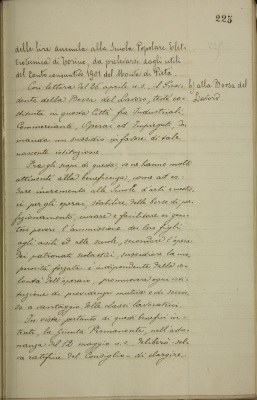 225
delle lire duemila alla Scuola Popolare Elet-
trotecnica di Torino, da prelevarsi dagli utili
del Conto consuntivo 1901 del Monte di Pietà
Con lettera del 26 aprile u. s. il Presi-
dente della Borsa del Lavoro, testè co-
stituita in questa Città fra Industriali,
Commercianti, Operai ed Impiegati, do-
manda un sussidio in favore di tale
nascente istituzione.
b) alla Borsa del
Lavoro
Fra gli scopi di questa ve ne hanno molti
attinenti alla beneficenza, come ad es.
dare incremento alle Scuole d'arti e mestie-
ri per gli operai, stabilire delle borse di per-
fezionamento, curare e facilitare ai geni-
tori poveri l'ammissione dei loro figli
agli asili ed alle scuole, secondare l'opera
dei patronati scolastici, sussidiare la ino-
perosità forzata e indipendente dalla vo-
lontà dell'operaio, promuovere ogni isti-
tuzione di previdenza mutua e di soccor-
so a vantaggio delle classi lavoratrici.
In vista pertanto di questi benefici in-
tenti, la Giunta Permanente, nell'adu-
nanza del 12 maggio u. s. deliberò sal-
va ratifica del Consiglio di elargire